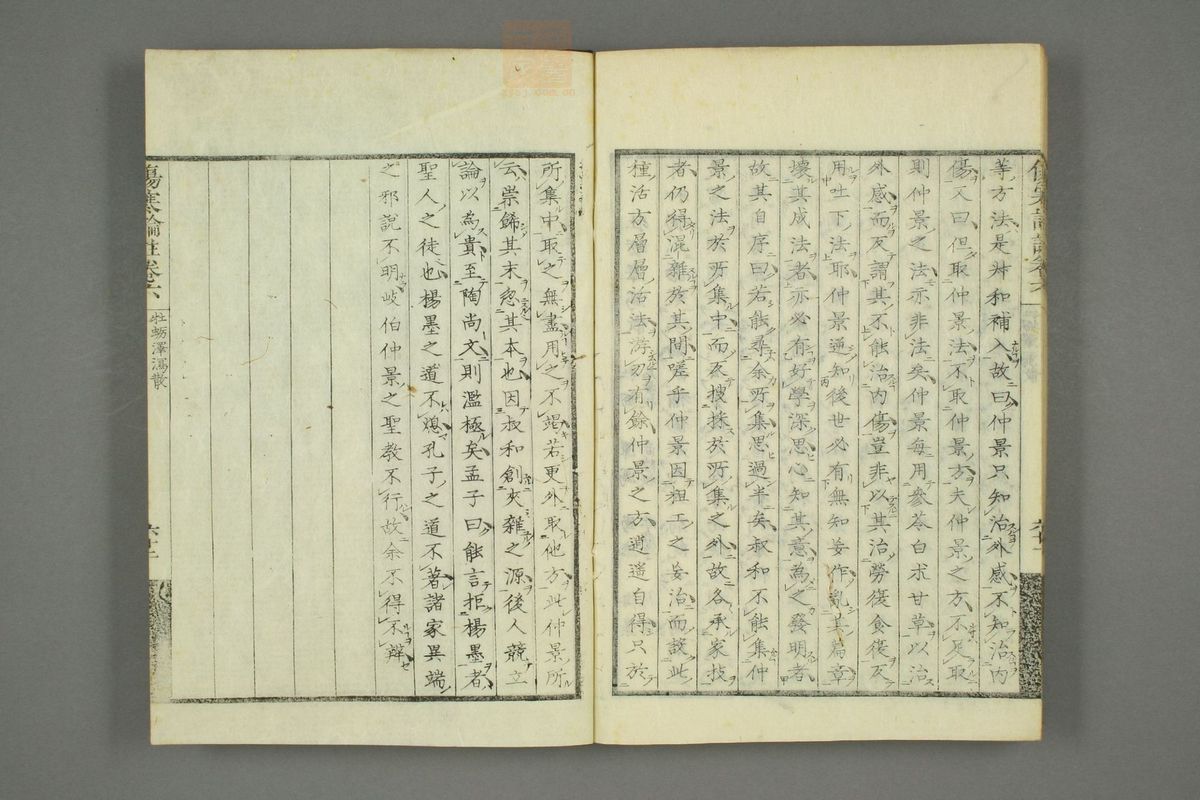 等方法是叔和補入故曰仲景只知治外感不知治内
傷又曰但取仲景法不取仲景方夫仲景之方不足取
則仲景之法亦非法矣仲景每用參苓白朮甘草以治
外感而反謂其不能治内傷豈非以其治勞復食復反
用吐下法耶仲景逆知後世必有無知妄作亂其篇章
壞其成法者亦必有好學深思心知其意為之發明者
故其自序曰若能尋余所集思過半矣叔和不能集仲
景之法於所集中而反搜採於所集之外故各承家技
者仍得混雜於其間嗟乎仲景因粗工之妄治而設此
種活方層層活法游刃有餘仲景之方逍遙自得只於
所集中取之無盡用之不竭若更外取他方此仲景所
云崇飾其末忽其本也因叔和創夾雜之源後人競立
論以為貴至陶尚文則濫極矣孟子曰能言拒楊墨者
聖人之徒也楊墨之道不熄孔子之道不著諸家異端
之邪說不明岐伯仲景之聖教不行故余不得不辨
傷寒論註卷六
牡蠣澤瀉散